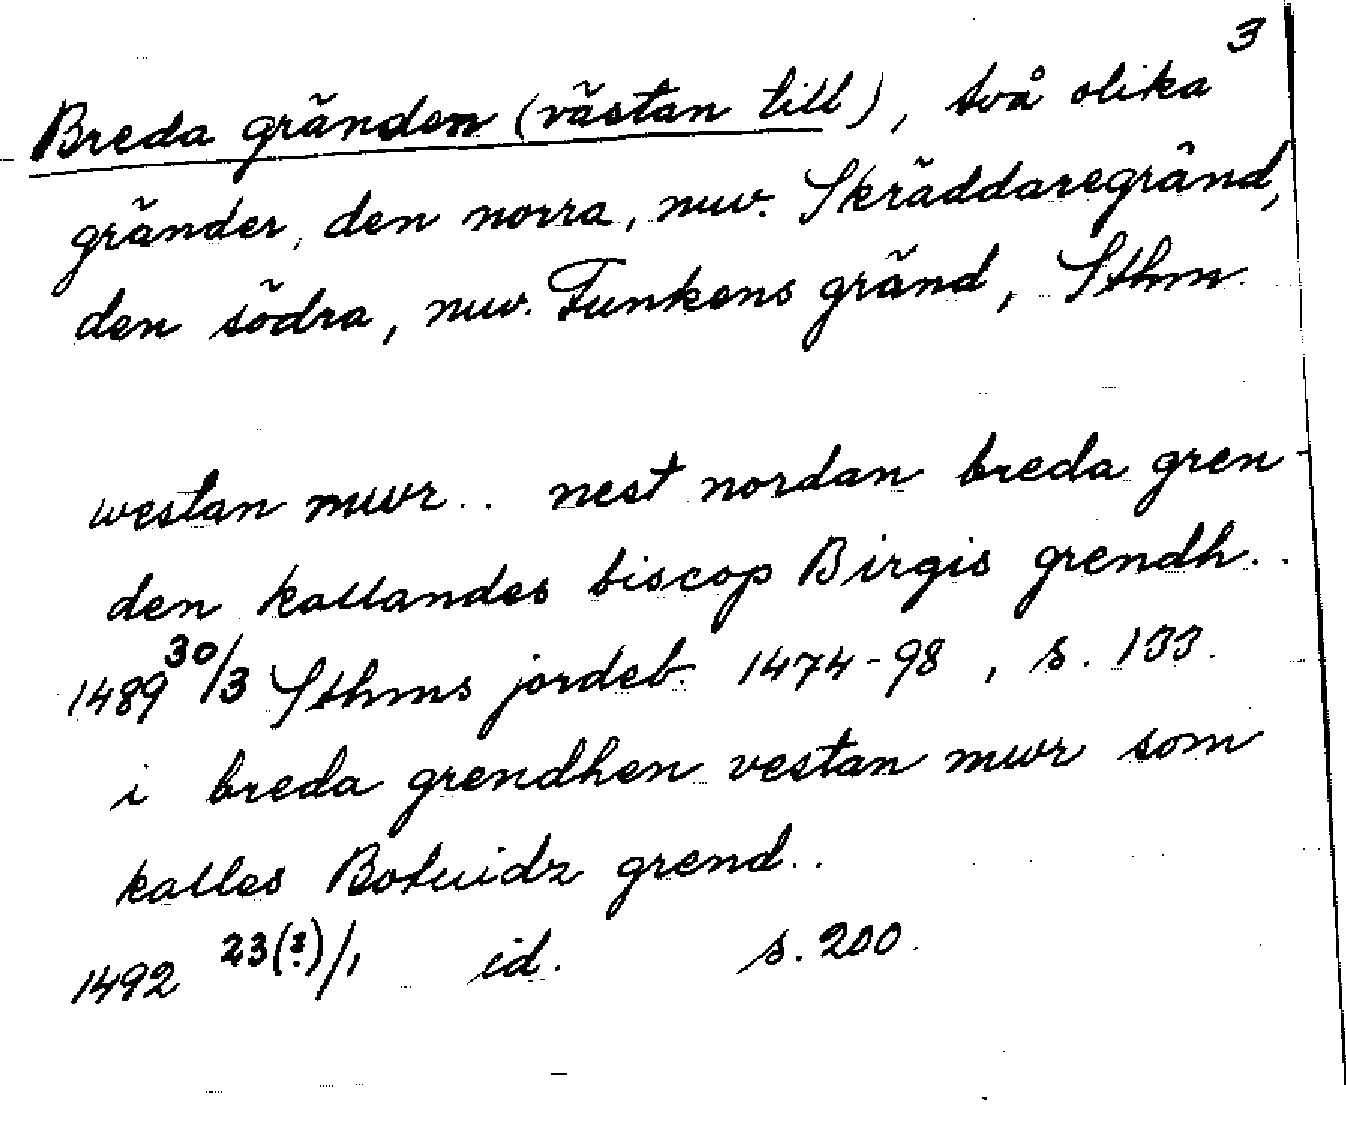 3
Breda gränden (västan till), två olika
gränder, den norra, nuv. Skräddaregränd,
den södra, nuv. Funkens gränd, Sthm.
westan mwr .. nest nordan breda gren-
den kallandes biscop Birgis grendh..
1489 30/3 Sthms jordeb. 1474-98, s. 133.
i breda grendhen vestan mwr som
kalles Botuidz grend..
1492 23(?)/1 id. s. 200.